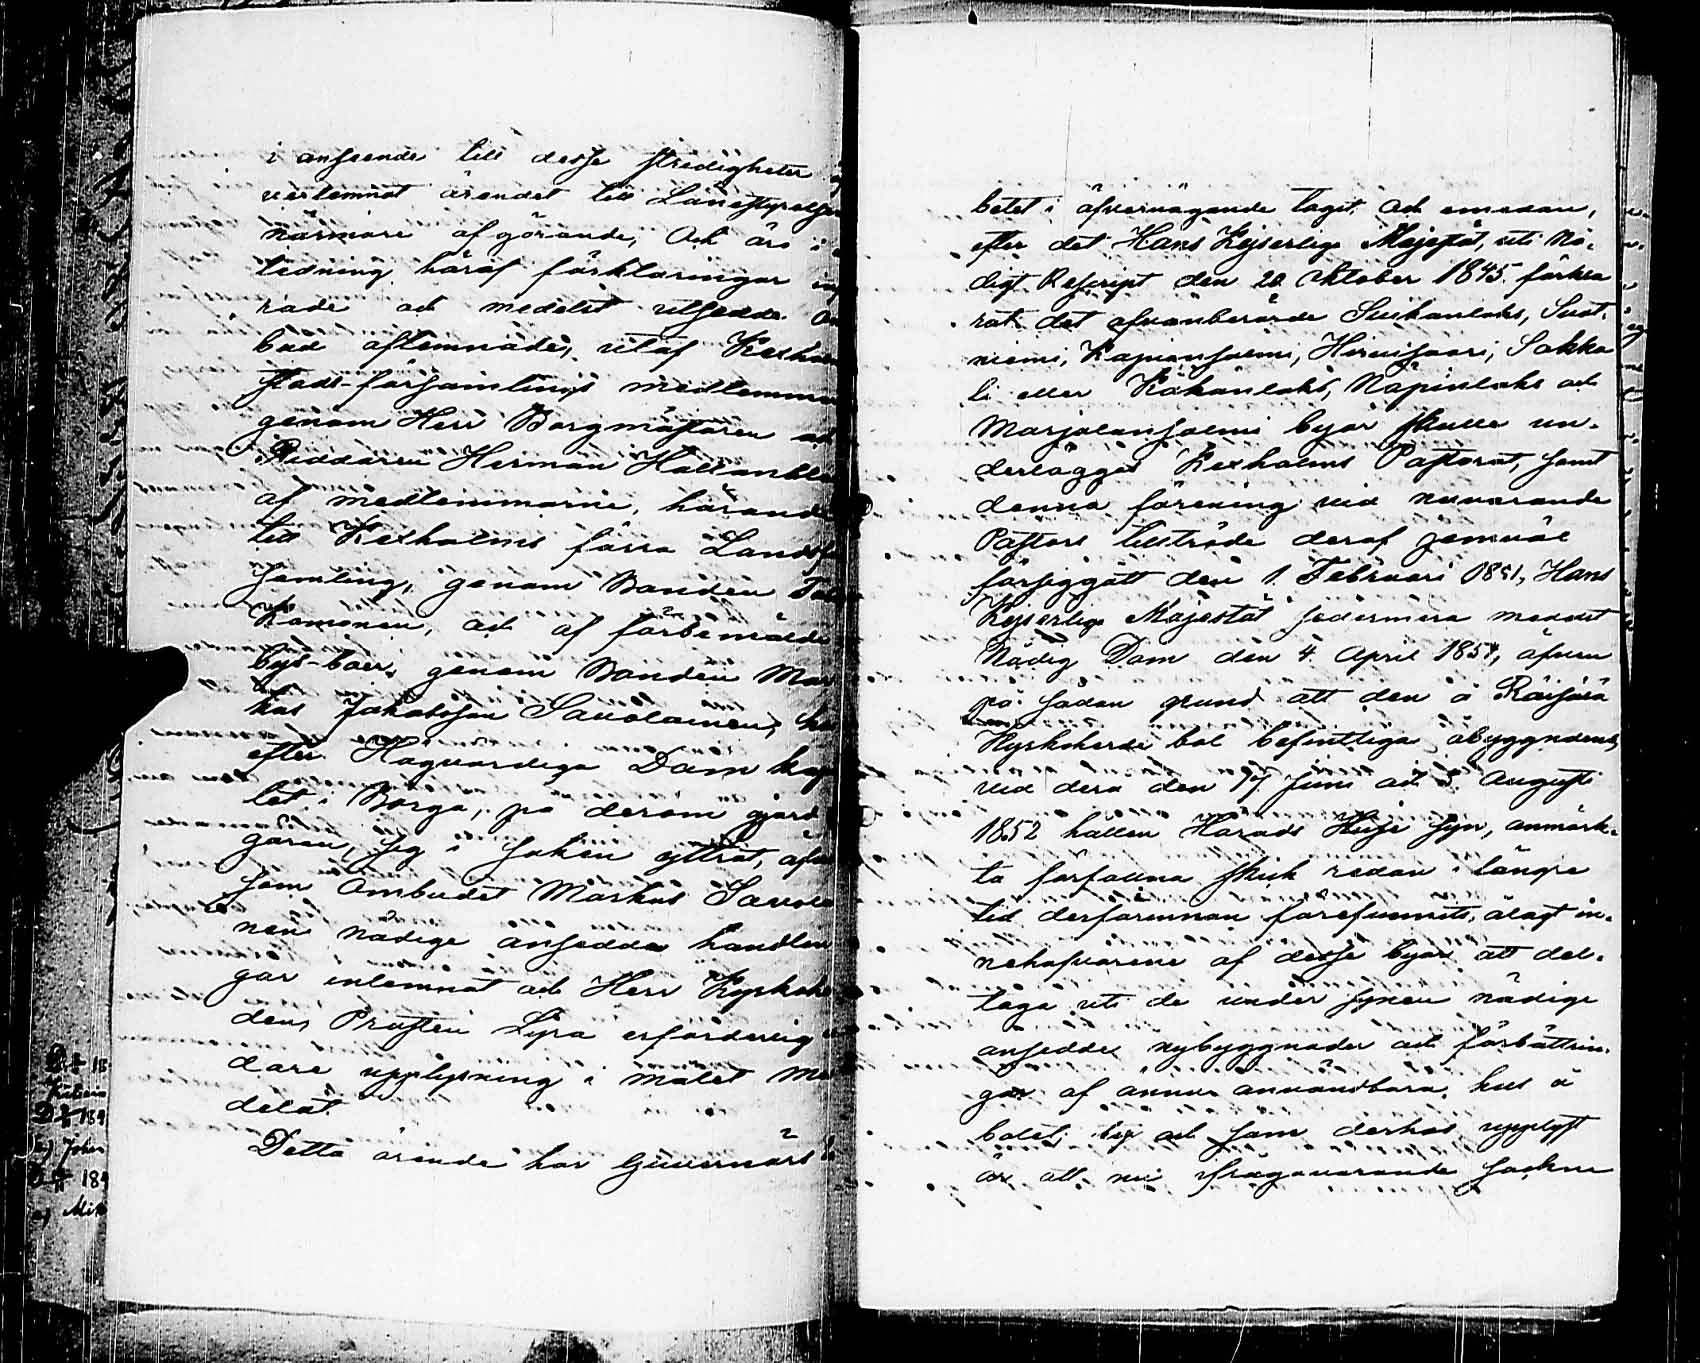 i anseende till desse stridigheter
verlemnat ärendet till Länestyrelsen
närmare afgörande, Och äro i
ledning häraf förklaringar
rade och medelst utsedde
bud aflemnade, utaf Kexholm
stads-församlings medlemmar
genom Herr Borgmästaren
Riddaren Herman Hallonbla
af medlemmarne, hörande
till Kexholms förra Lands
samling, genom Bonden
Komonen, och af förbemälde
bys-boer, genom Bonden Mar
kus Jakobsson Savolainen,
efter Högvördiga Dom kap
let i Borgå, på derom gjord
garan, sig i saken yttrat,
som Ombudet Markus Savola
nen nödige ansedda handlin
gar inlemnat och Herr Kyrkohe
den, Prosten Lyra erforderlig
dare upplysning i målet
delat.
Detta ärende har Guvernörs
betet i öfvervägande tagit och emedan,
efter det Hans Kejserliga Majestät, uti Nå-
digt Reskript den 20 Oktober 1845 förkla
rat det ofvanberörde Suikanlaks, Suot
niemi, Kapiansalmi, Hirvisaari, Sakka
li eller Kökönlaks, Näpinlaks och
Marjalansalmi byar skulle un-
derläggas Kexholms Pastorat, samt
denna förening vid nuvarande
Pastors tillträde deraf jemväl
försiggått den 1. Februari 1851, Hans
Kejserliga Majestät sedermera medelst
Nådig Dom den 4 April 1857, äfven
på sådan grund att den å Räisälä
Kyrkoherde bol befintliga åbyggnadens
vid dera den 17 Juni och 3 Augusti
1852 hållen Härads Husesyn, anmärk-
ta förfallna skick redan i längre
tid derförinnan förefunnits, ålagt in-
nehafvarene af desse byar att del-
taga uti de under synen nödige
ansedde nybyggnader och förbättrin-
gar af ännu användbara hus å
bolet och som derhos upplyst
är att nu ifrågavarande